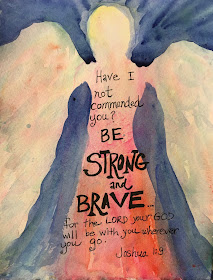 Have I
not
commanded
you?
BE
STRONG
and
BRAVE...
for the LORD your GOD
will be with you wherever
you go.
Joshua 1:9